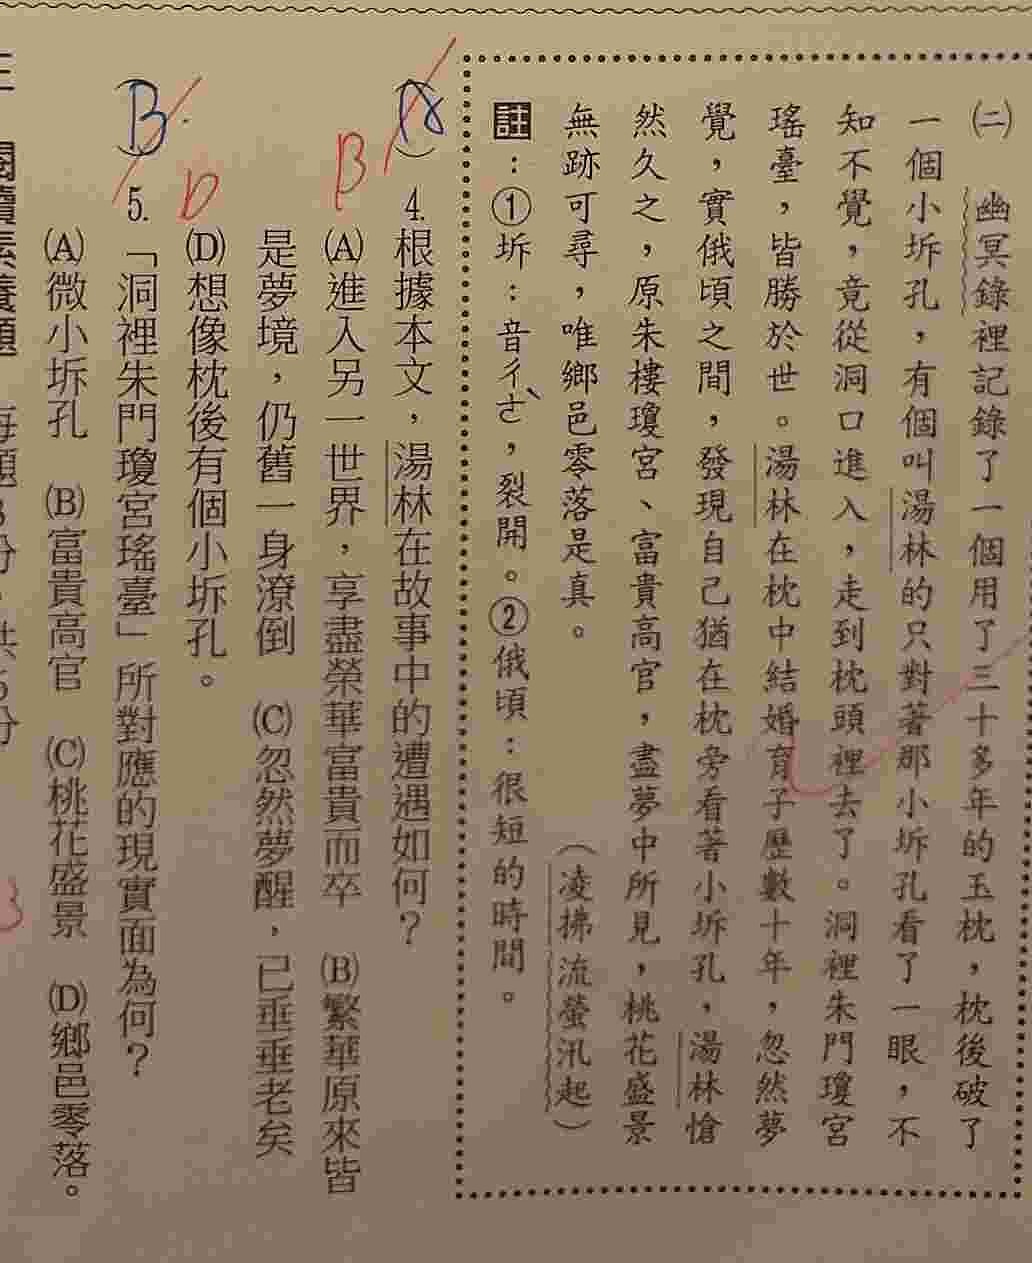 ㈡　幽冥錄裡記錄了一個用了三十多年的玉枕，枕後破了
一個小坼孔，有個叫湯林的只對著那小坼孔看了一眼，不
知不覺，竟從洞口進入，走到枕頭裡去了。洞裡朱門瓊宮
瑤臺，皆勝於世。湯林在枕中結婚育子歷數十年，忽然夢
覺，實俄頃之間，發現自己猶在枕旁看著小坼孔，湯林愴
然久之，原朱樓瓊宮、富貴高官，盡夢中所見，桃花盛景
無跡可尋，唯鄉邑零落是真。　（凌拂流螢汛起）
註：①坼：音ㄔㄜˋ，裂開。②俄頃：很短的時間。
（A）4.根據本文，湯林在故事中的遭遇如何？
B
(A)進入另一世界，享盡榮華富貴而卒　(B)繁華原來皆
是夢境，仍舊一身潦倒　(C)忽然夢醒，已垂垂老矣
(D)想像枕後有個小坼孔。
D
（B）5.「洞裡朱門瓊宮瑤臺」所對應的現實面為何？
(A)微小坼孔　(B)富貴高官　(C)桃花盛景　(D)鄉邑零落。
3